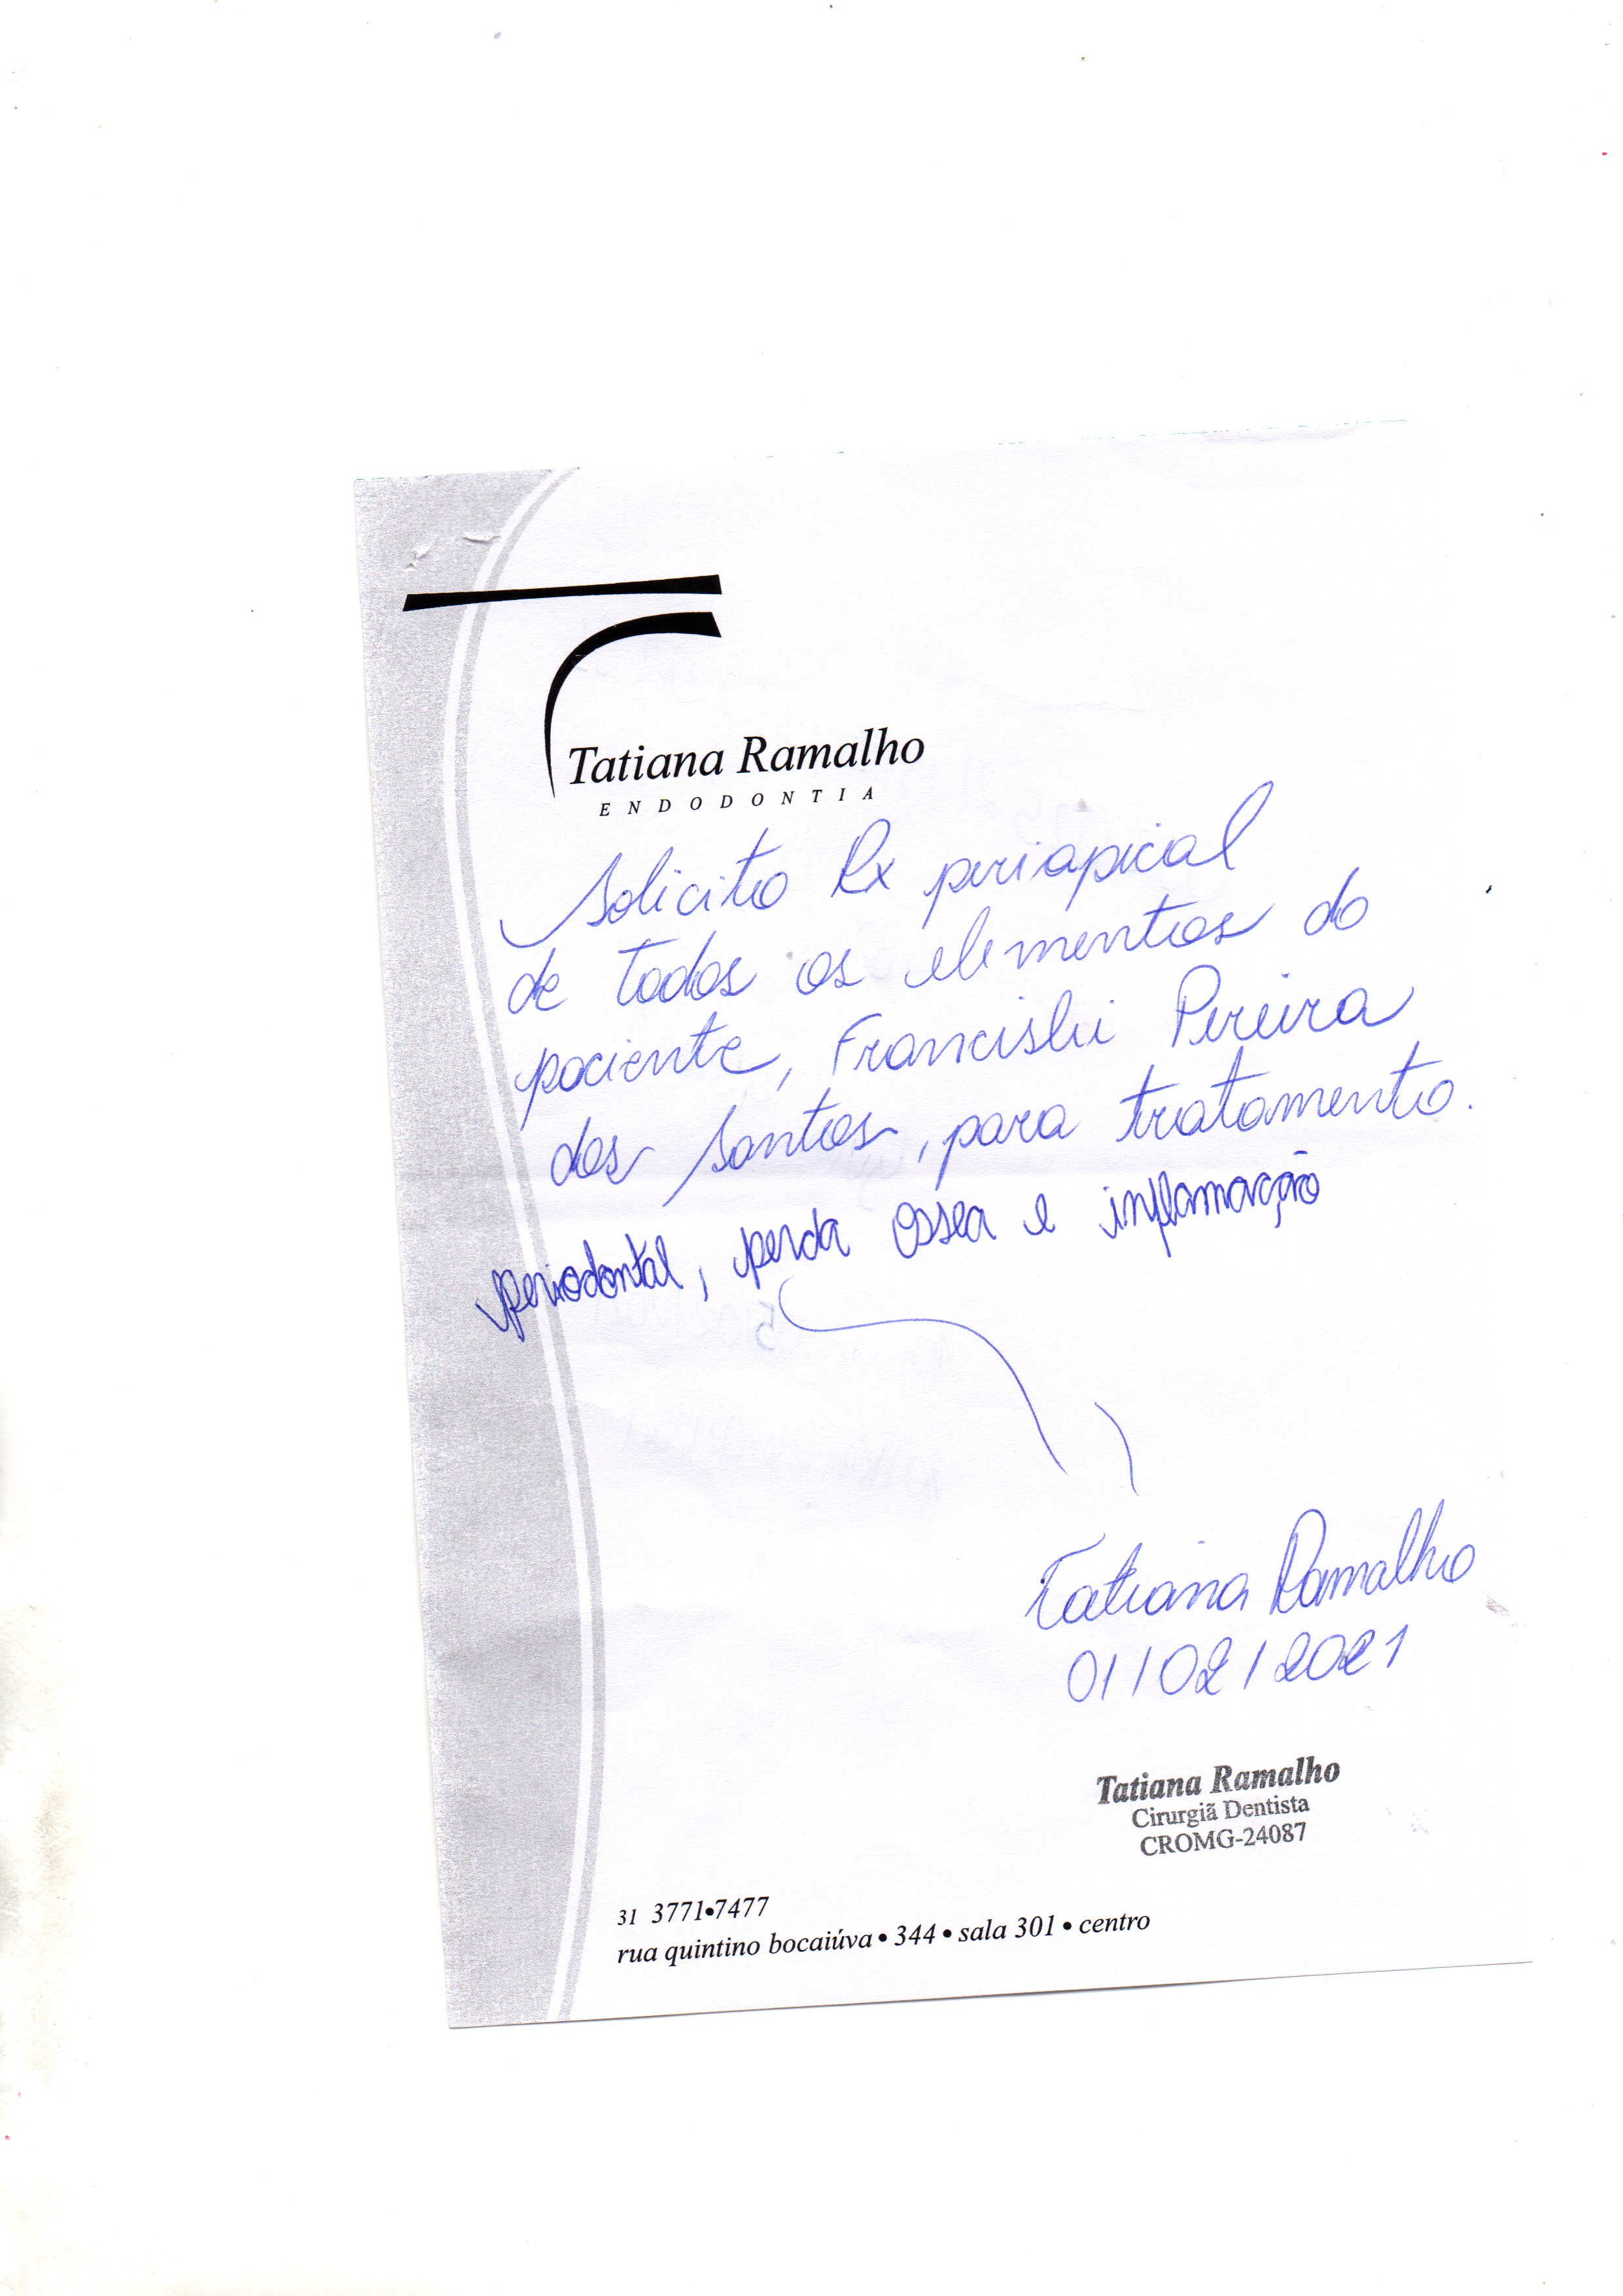 Tatiana Ramalho
ENDODONTIA
Solicito Rx periapical
de todos os elementos do
paciente, Francislei Pereira
dos Santos, para tratamento.
periodontal, perda ossea e inflamação
Tatiana Ramalho
01/02/2021
Tatiana Ramalho
Cirurgiã Dentista
CROMG-24087
31 3771•7477
rua quintino bocaiúva • 344 • sala 301 • centro